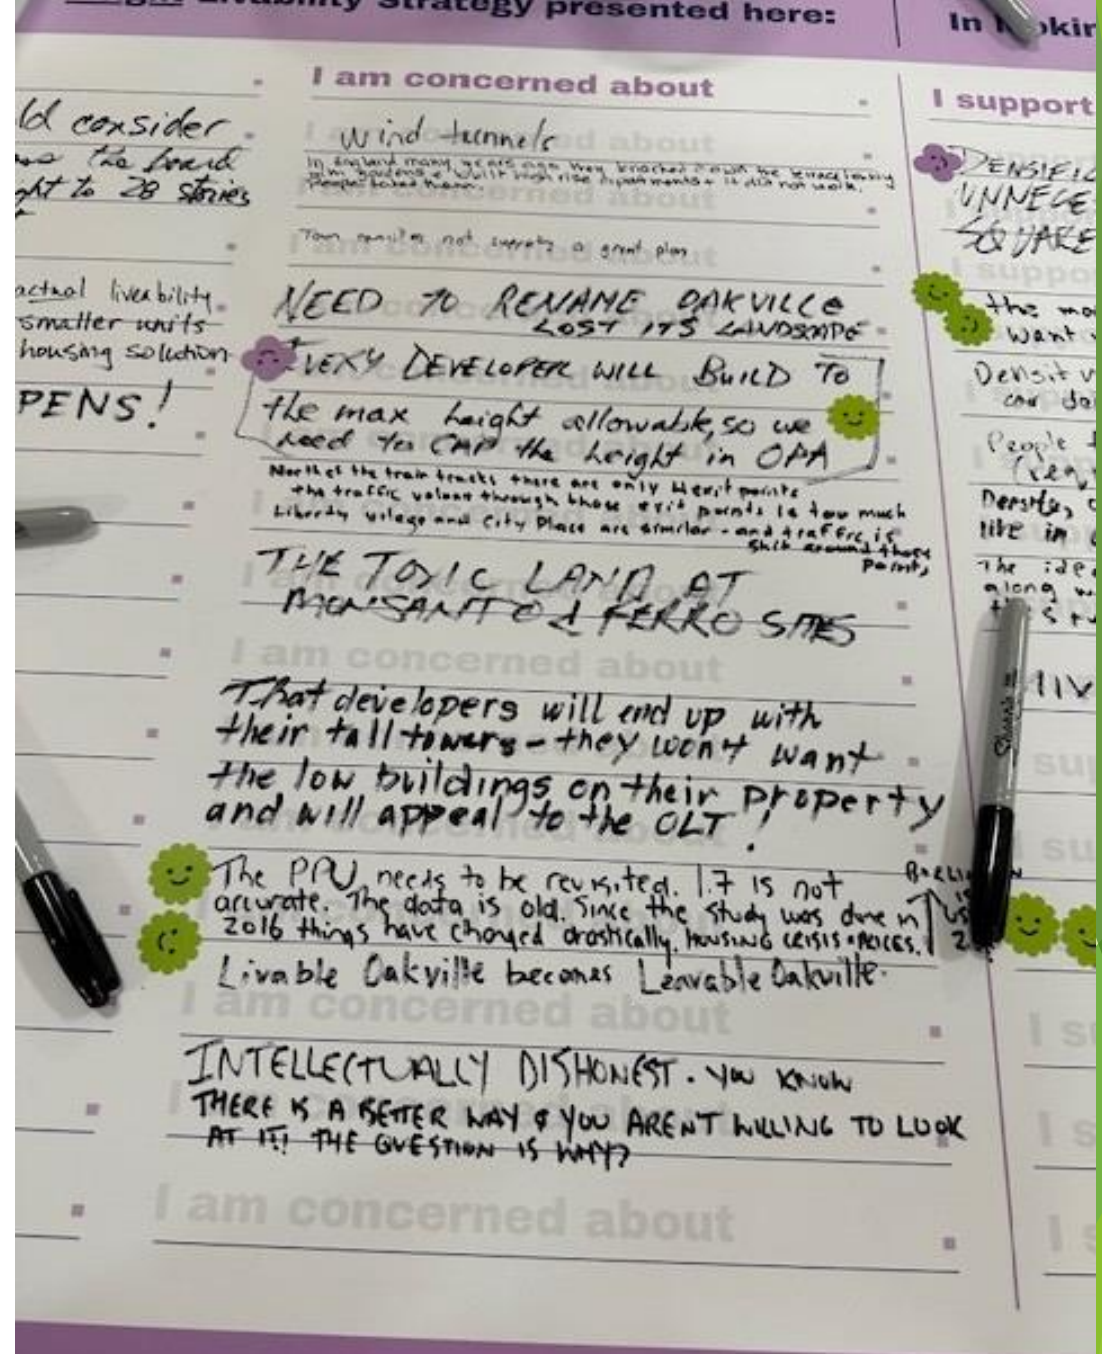 Livability Strategy presented here:
I am concerned about
wind tunnels
In England many years ago they knocked down the
built high rise apartments + it did not work.
People hated them.
not a great plan
NEED TO RENAME OAKVILLE
LOST ITS LANDSCAPE
EVERY DEVELOPER WILL BUILD TO
the max height allowable, so we
need to CAP the height in OPA
North of the train tracks there are only exit points
the traffic volume through those exit points is too much
Liberty vilage and City Place are similar - and traffic is
around those
points
THE TOXIC LAND AT
MONSANTO & FERRO SITES
I am concerned about
That developers will end up with
their tall towers - they won't want
the low buildings on their property
and will appeal to the OLT!
The PPU needs to be revisited. 1.7 is not
accurate. The data is old. Since the study was done in
2016 things have changed drastically. HOUSING CRISIS + PRICES.
Livable Oakville becomes Leavable Oakville.
I am concerned about
INTELLECTUALLY DISHONEST. YOU KNOW
THERE IS A BETTER WAY & YOU ARENT WILLING TO LOOK
AT IT! THE QUESTION IS WHY?
I am concerned about
ld consider
the board
ght to 28 stories
actual liveability
smaller units
housing solution
PENS!
In
I support
DENSIFIC
UNNECE
SQUARE
the mo
want
Densit
People
Density
live in
The ide
along
Sharpie